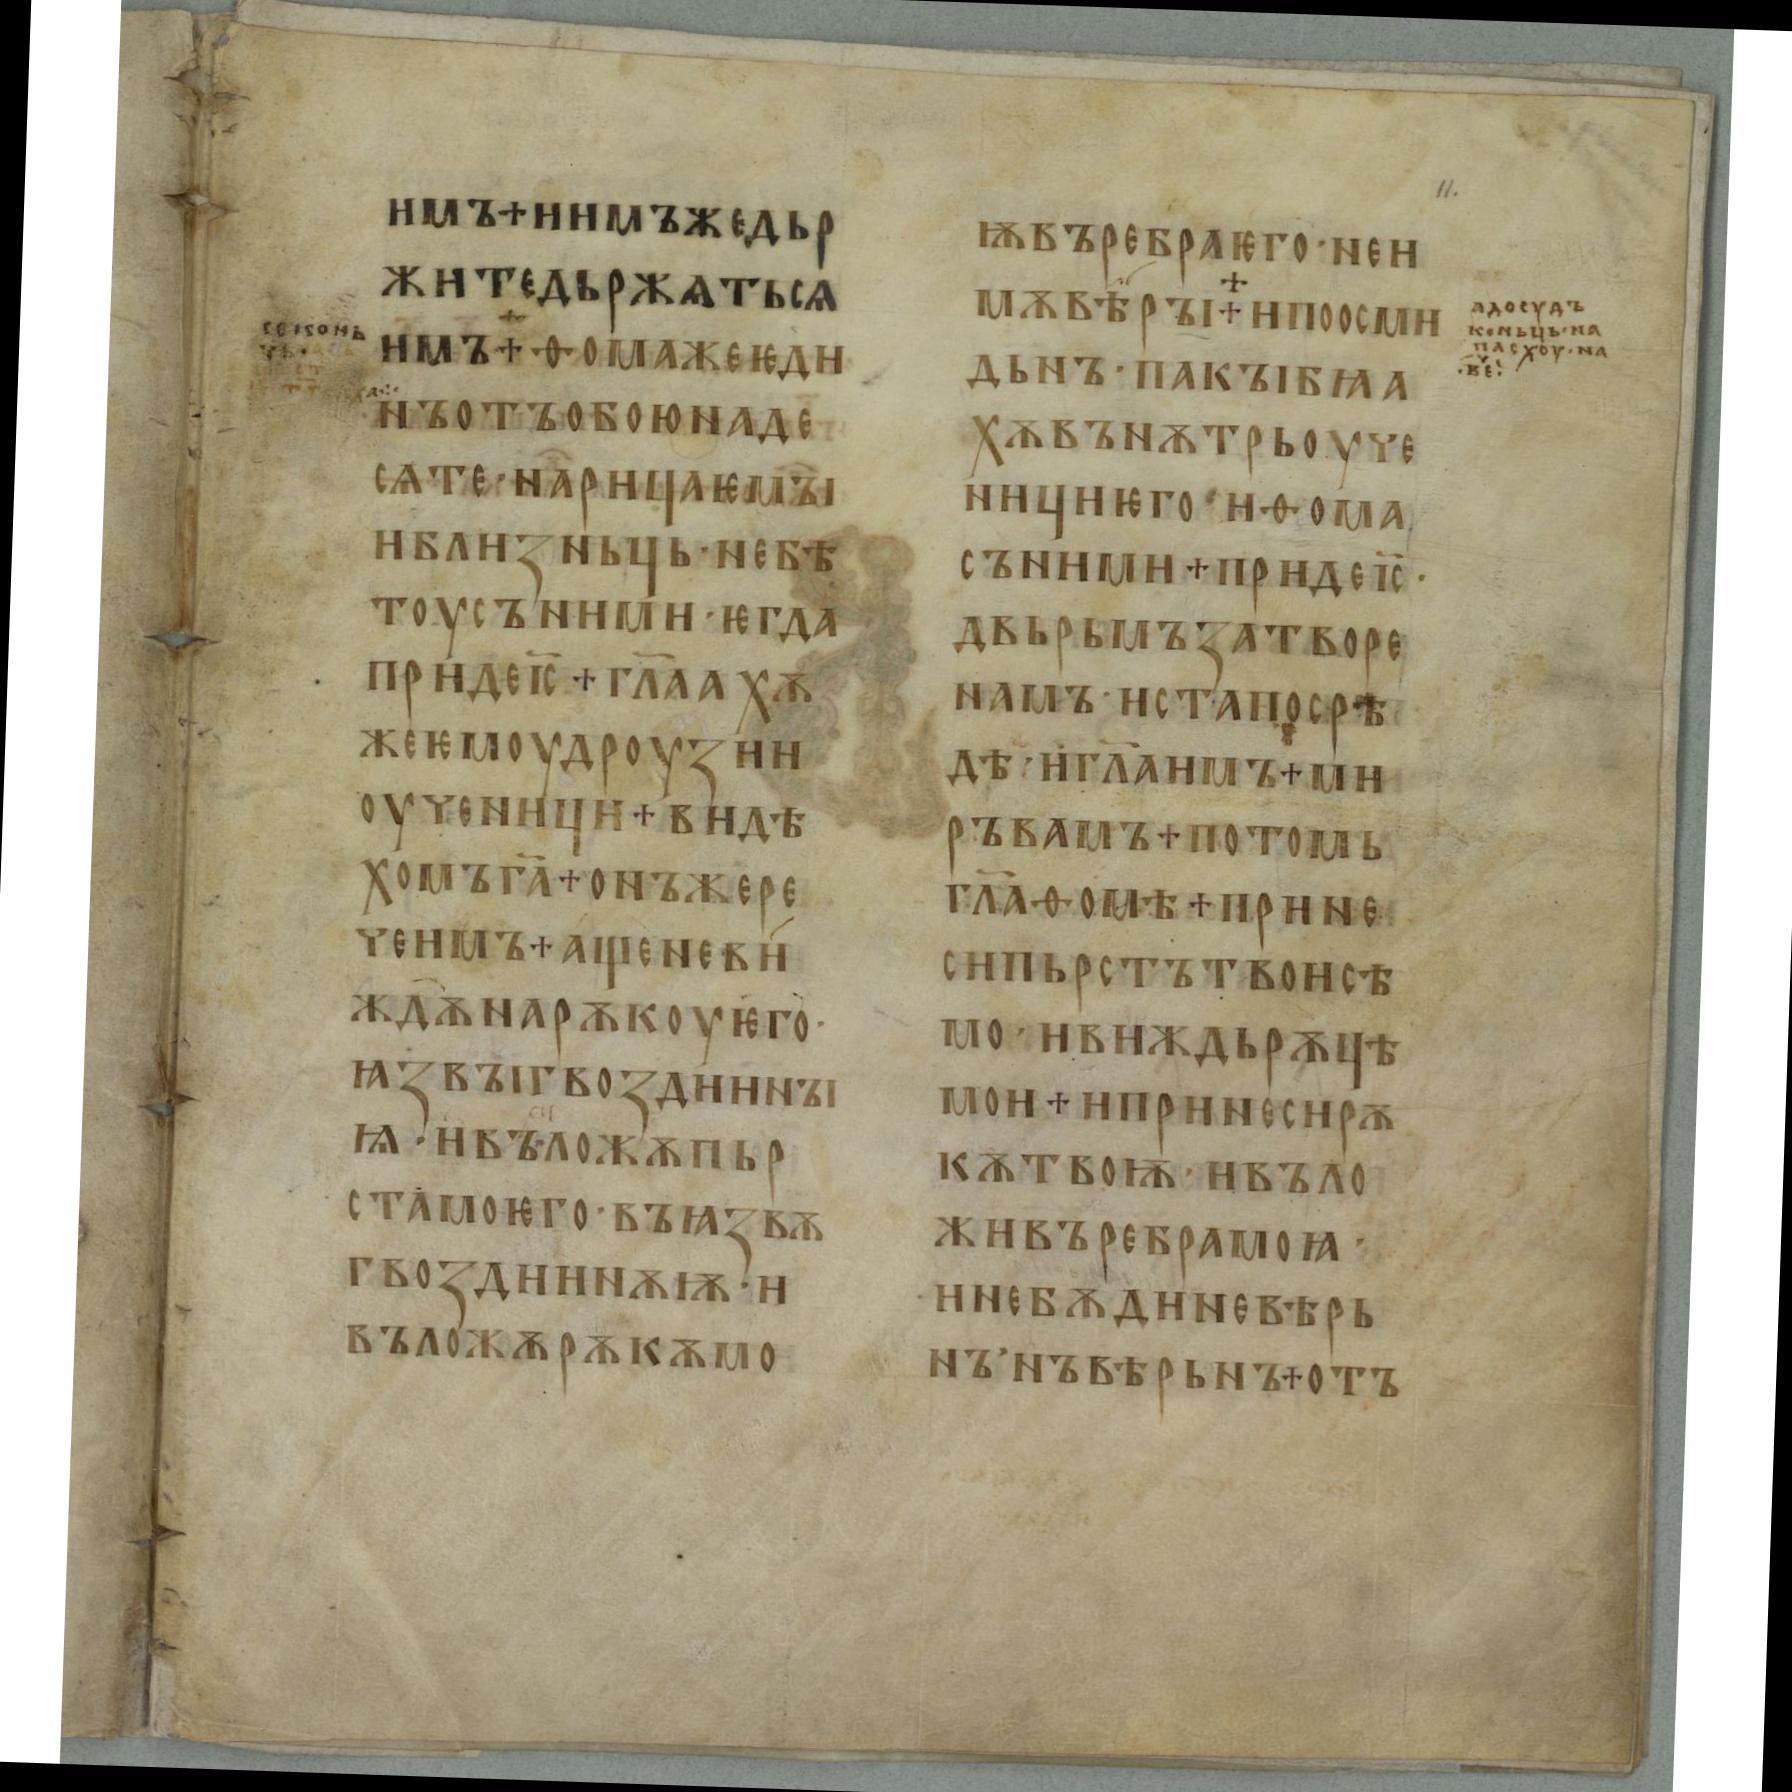 имъ+инмъжедьр
житедьржѧтьсѧ
имъ+ѳомажеѥди
нъотъобоюнаде
сѧте·нарицаѥмꙑи
иблизньць·небѣ
тоусъними·ѥгда
придеіс҃+гл҃аахѫ
жеѥмоудроузии
оученици+видѣ
хомъга҃+онъжере
чеимъ+ащеневи
ждѫнарѫкоуѥго·
ꙗзвꙑгвоздинꙑ
ꙗ·ивъложѫпьр
стамоѥго·въꙗзвѫ
гвоздинѫѭ·и
въложѫрѫкѫмо
ѭвъребраѥго·неи
мѫвѣрꙑ+ипоосми
дьнъ·пакꙑбѩа
хѫвънѫтрьоуче
ницниѥго·иѳома
съними+придеіс҃·
двьрьмъзатворе
намъ·истапосрѣ
дѣ·игл҃аимъ+ми
ръвамъ+потомь
гл҃аѳомѣ+прине
сипьрстътвоисѣ
мо·ивиждьрѫцѣ
мои+ипринесирѫ
кѫтвоѭ·ивъло
живъребрамоꙗ·
инебѫдиневѣрь
нъ·нъвѣрьнъ+отъ
11.
адосудъ
коньць·на
пасхоу·на
·ве҃·